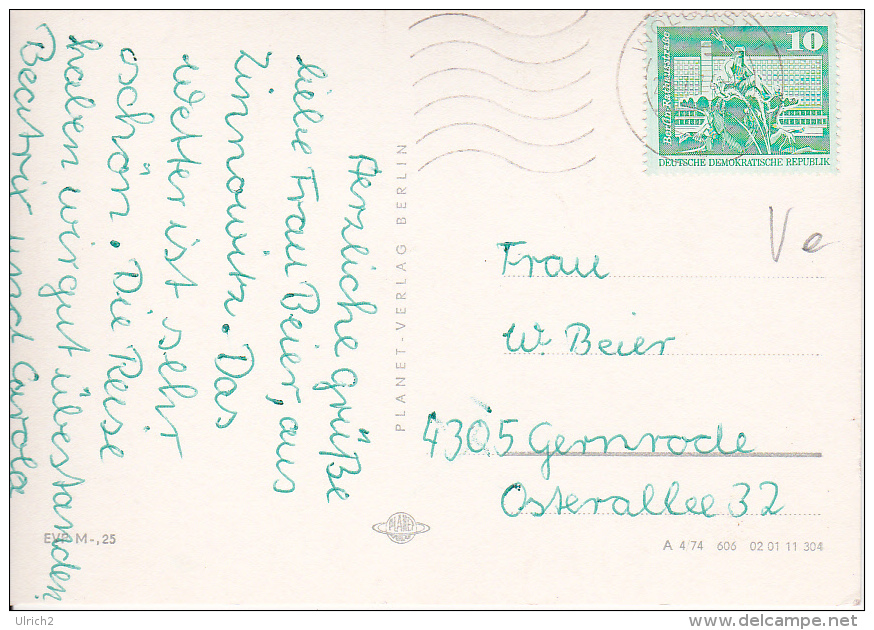 Herzliche Grüße
liebe Frau Beier, aus
Zinnowitz. Das
Wetter ist sehr
schön. Die Reise
haben wir gut überstanden
Beatrix und Carola
PLANET-VERLAG BERLIN
EVP M -,25
PLANET
10
Berlin Rathausstraße
DEUTSCHE DEMOKRATISCHE REPUBLIK
Ve
Frau
W. Beier
4305 Gernrode
Osterallee 32
A 4/74 606 02 01 11 304
Ulrich2
www.delcampe.net